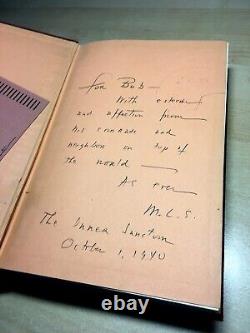 for Bob —
With esteem
and affection from
his comrade and
neighbor on top of
the world —
As ever
M.L.S.
The Inner Sanctum
October 1, 1940